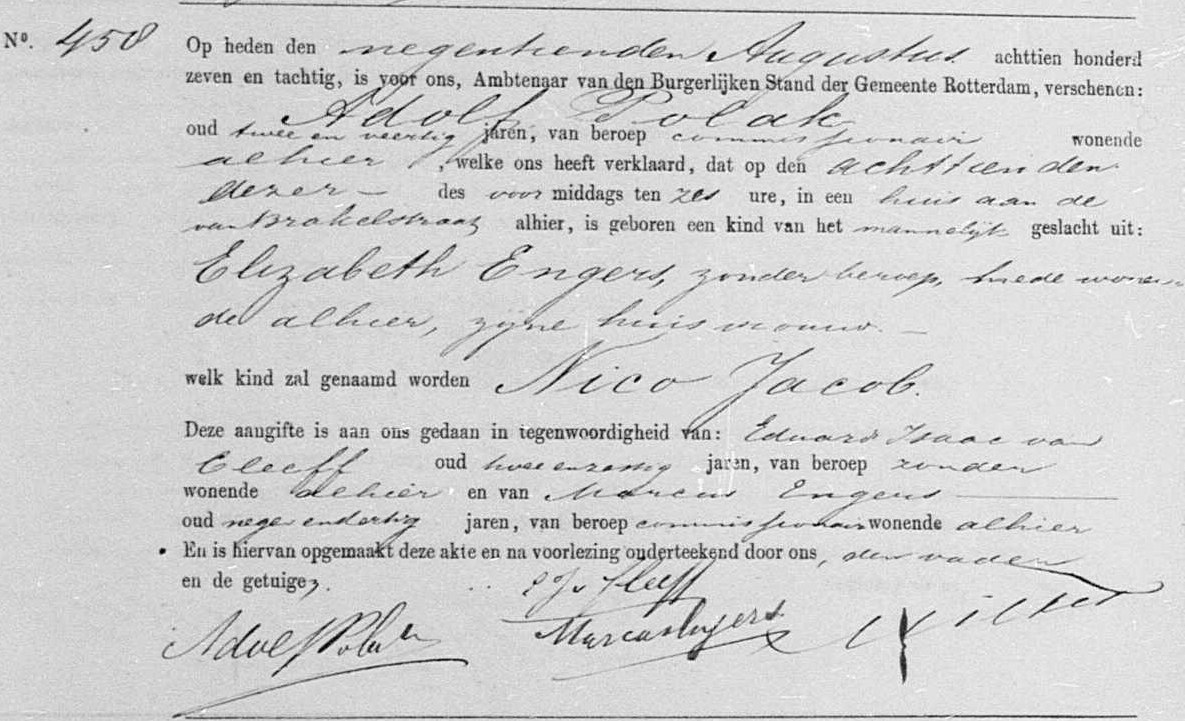 No. 458
Op heden den negentienden Augustus achttien honderd
zeven en tachtig, is voor ons, Ambtenaar van den Burgerlijken Stand der Gemeente Rotterdam, verschenen:
Adolf Polak
oud twee en veertig jaren, van beroep commissionair wonende
alhier, welke ons heeft verklaard, dat op den achttienden
dezer – des voor middags ten zes ure, in een huis aan de
van Brakelstraat alhier, is geboren een kind van het mannelijk geslacht uit:
Elizabeth Engers, zonder beroep, mede wonen-
de alhier, zijne huisvrouw. –
welk kind zal genaamd worden Nico Jacob.
Deze aangifte is aan ons gedaan in tegenwoordigheid van: Eduard Isaac van
Cleeff oud twee en zestig jaren, van beroep zonder
wonende alhier en van Marcus Engers
oud negenendertig jaren, van beroep commissionair wonende alhier
En is hiervan opgemaakt deze akte en na voorlezing onderteekend door ons, den vader
en de getuigen.
Cleeff
Adolf Polak Marcus Engers